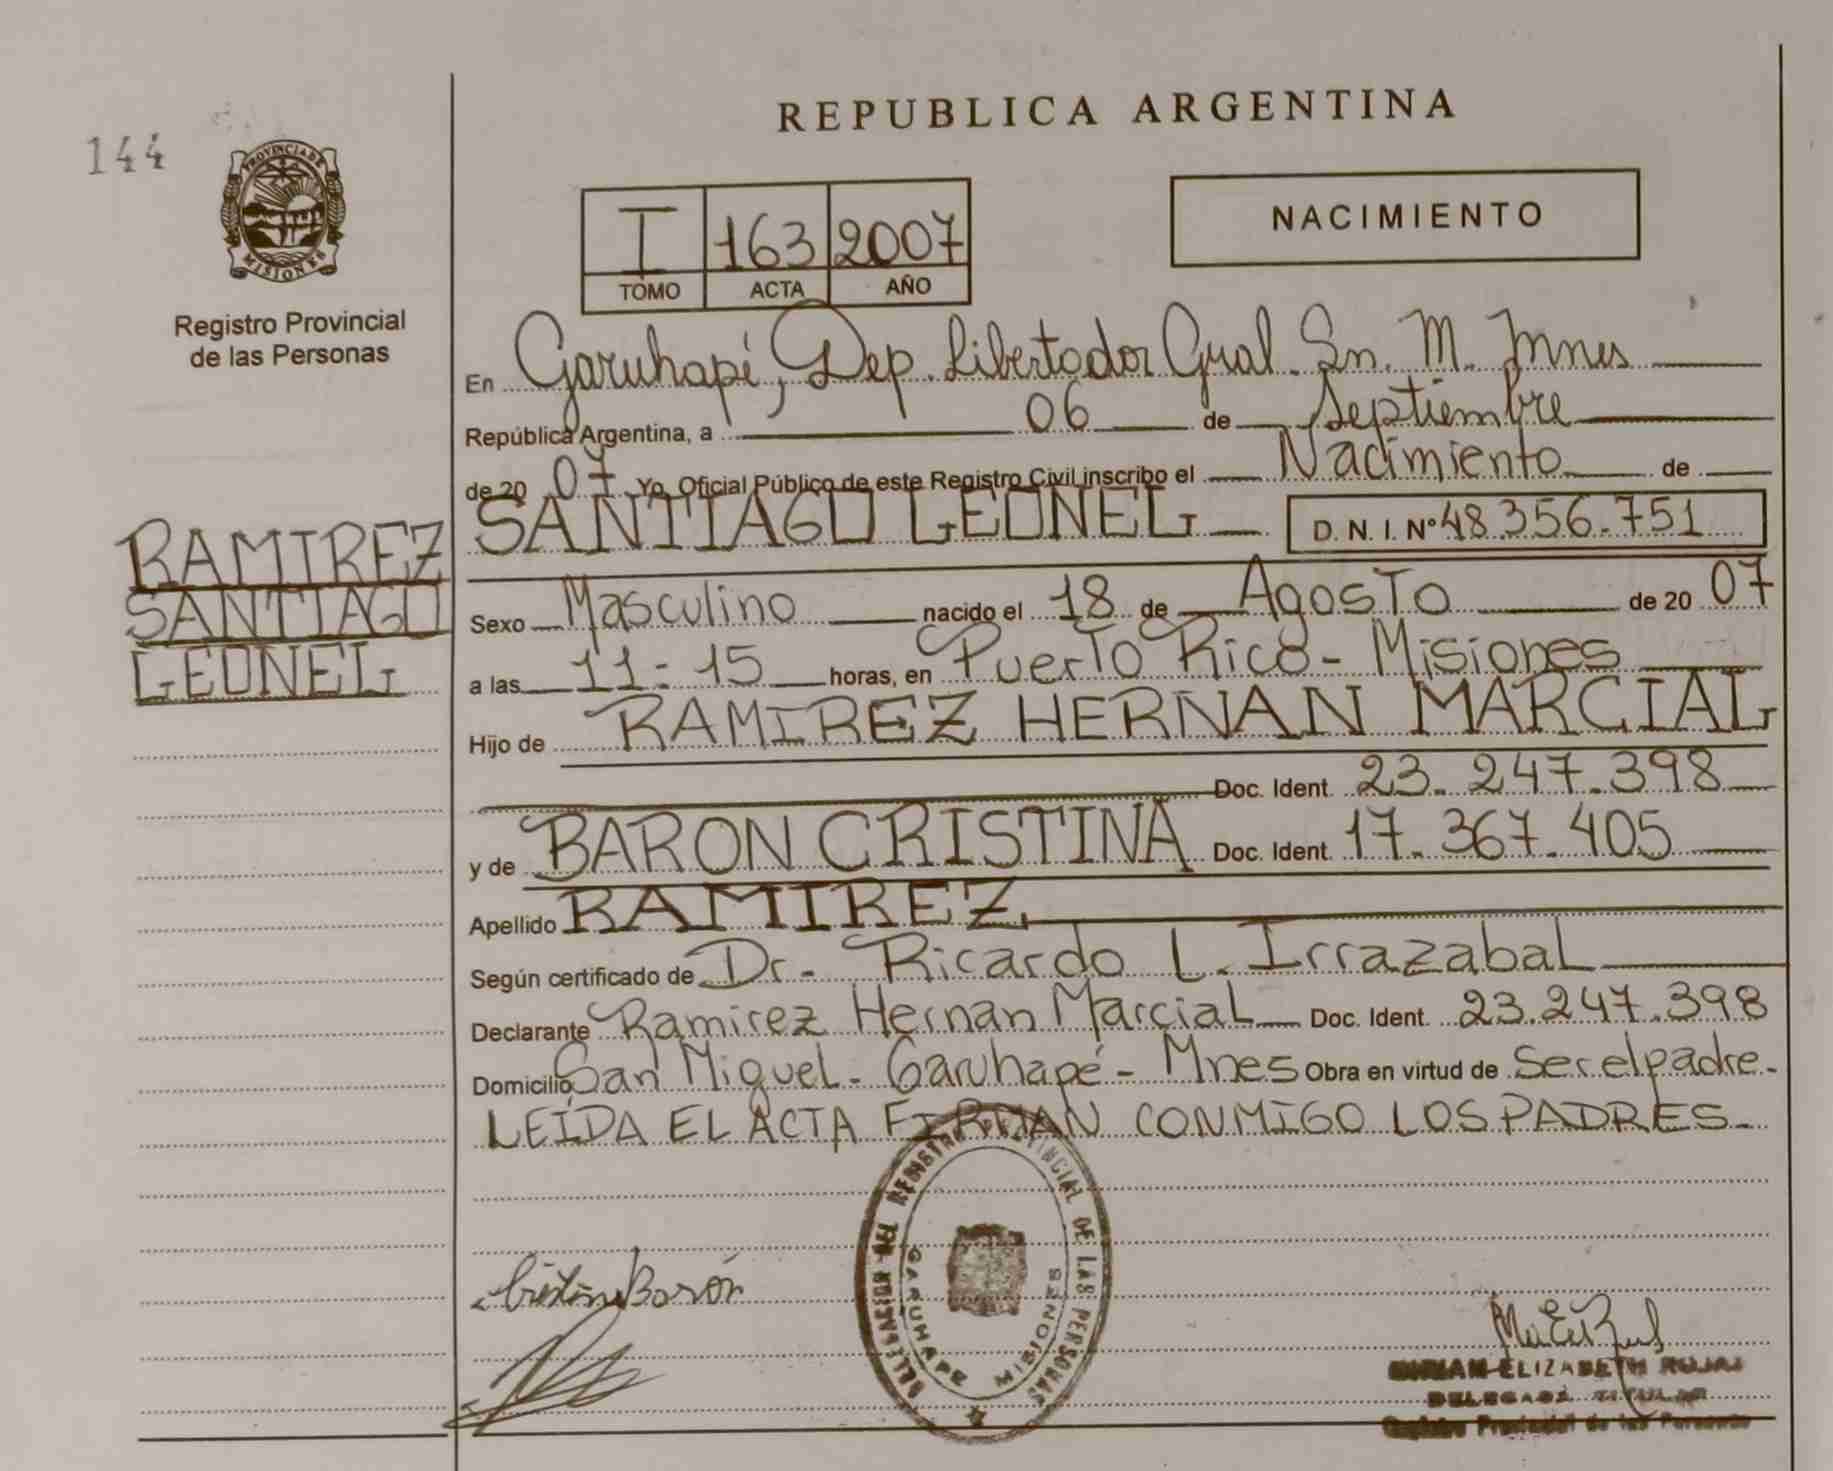 REPUBLICA ARGENTINA
144
PROVINCIA DE
MISIONES
Registro Provincial
de las Personas
NACIMIENTO
I 163 2007
TOMO ACTA AÑO
En Garuhapé, Dep. Libertador Gral. Sn. M. Mnes
República Argentina, a 06 de Septiembre
de 20 07 Yo, Oficial Público de este Registro Civil inscribo el Nacimiento de
RAMIREZ
SANTIAGO
LEONEL
SANTIAGO LEONEL D.N.I. Nº 48.356.751
Sexo Masculino nacido el 18 de Agosto de 20 07
a las 11-15 horas, en Puerto Rico - Misiones
Hijo de RAMIREZ HERNAN MARCIAL
Doc. Ident. 23.247.398
y de BARON CRISTINA Doc. Ident. 17.367.405
Apellido RAMIREZ
Según certificado de Dr. Ricardo L. Irrazabal
Declarante Ramirez Hernan Marcial Doc. Ident. 23.247.398
Domicilio San Miguel - Garuhapé - Mnes Obra en virtud de Ser el padre-
LEÍDA EL ACTA FIRMAN CONMIGO LOS PADRES-
DELEGACION DEL REGISTRO PROVINCIAL DE LAS PERSONAS
GARUHAPE MISIONES
Cristina Barón
ELIZABETH ROJAS
DELEGADA TITULAR
Registro Provincial de las Personas